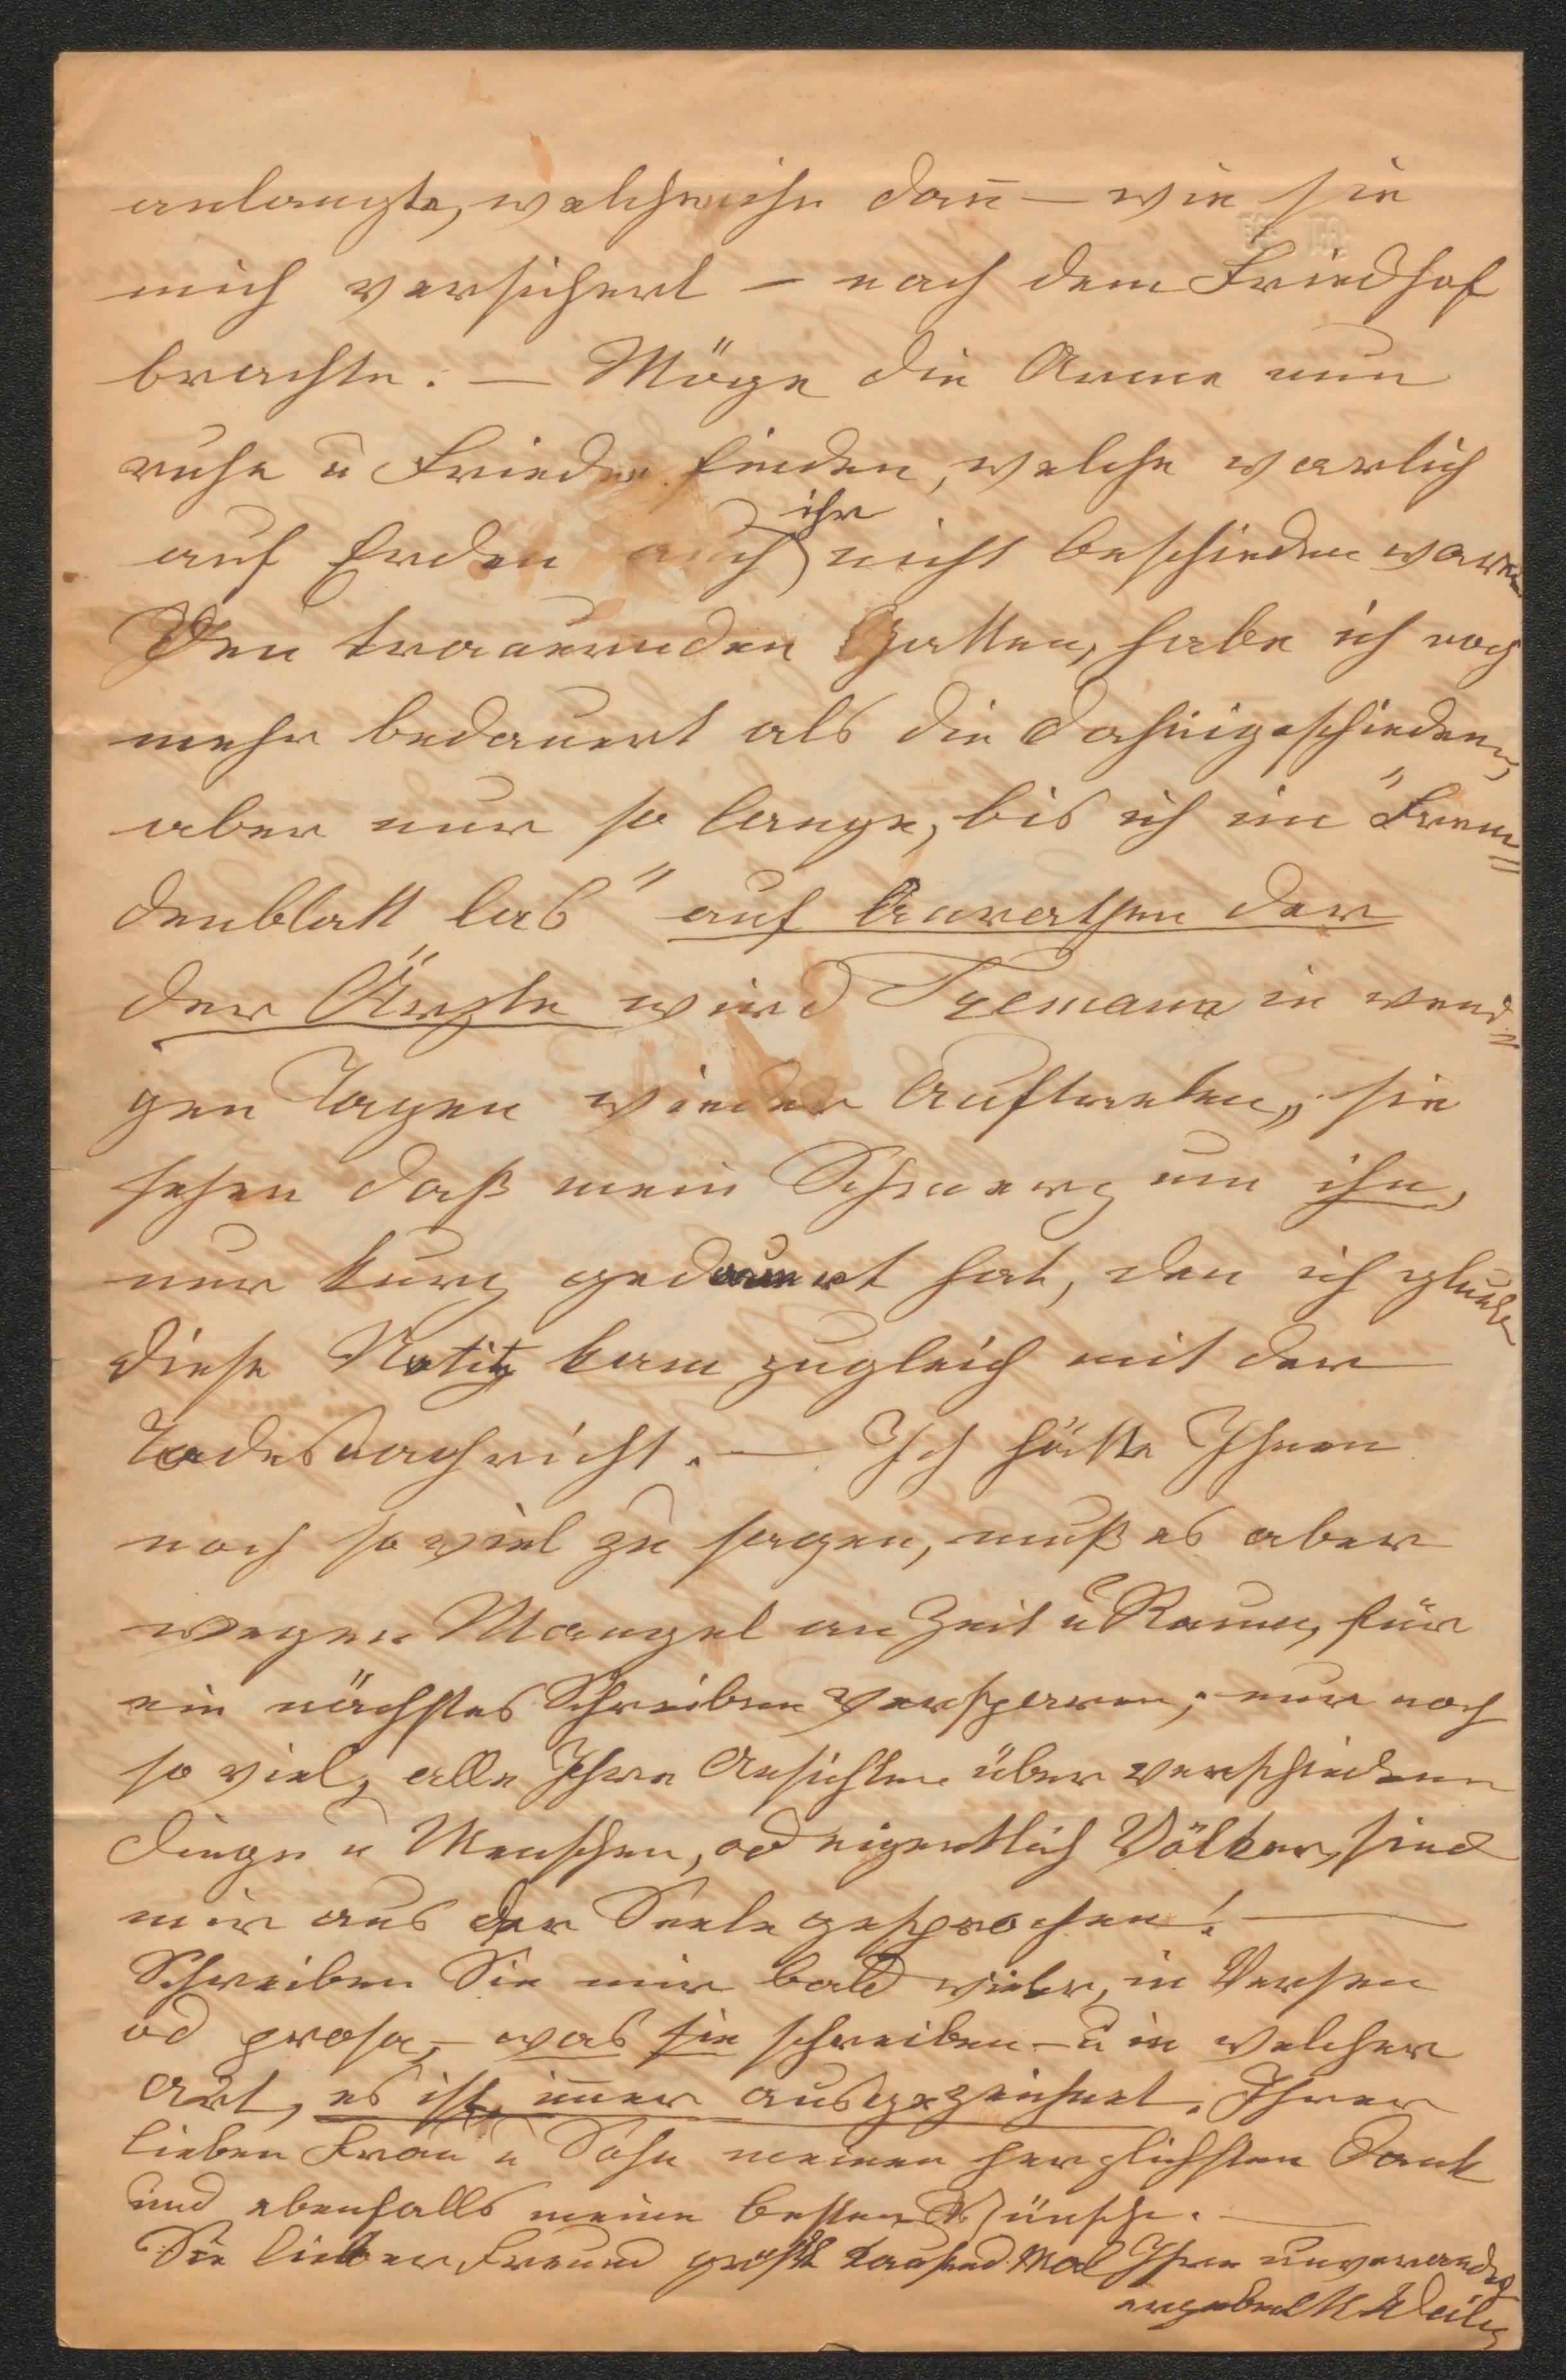 anlangte, welche ihn dan̄ — wie sie
mich versichert — nach dem Friedhof
brachte. — Möge die Arme nun
ruhe ū Frieden finden, welche warlich
auf Erden auch ihr nicht beschieden waren
Den trauernden Gatten, habe ich noch
mehr bedauert als die dahingeschiedene,
aber nur so lange, bis ich im "Frem=
denblatt las" auf Anrathen der
der Ärzte wird Tyemann in weni=
gen Tagen wieder Auftreten," sie
sehen daß mein Schmerz um ihn,
nur kurz gedauert hat, den ich glaube
diese Notitz kam zugleich mit der
Todesnachricht. — Ich hätte Ihnen
noch so viel zu sagen, muß es aber
wegen Mangel an Zeit ū Raum, für
ein nächstes Schreiben versparen; nur noch
so viel, alle Ihre Ansichten über verschiedene
Dinge ū Menschen, od eigentlich Völker, sind
mir aus der Seele gesprochen! —
Schreiben Sie mir bald wieder, in Versen
od prosa, — was sie schreiben — ū in welcher
Art, es ist im̄er ausgezeichnet. Ihrer
lieben Frau ū Sohn meinen herzlichsten Dank
und ebenfalls meine besten Wünsche. —
Sie lieber Freund grüßt tausend Mal Ihre unverändert
ergebene